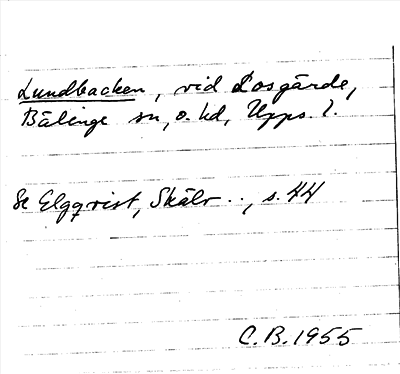 Lundbacken, vid Losgärde,
Bälinge sn, o. hd, Upps. l.
Se Elgqvist, Skälv . . , s. 44
C. B. 1955